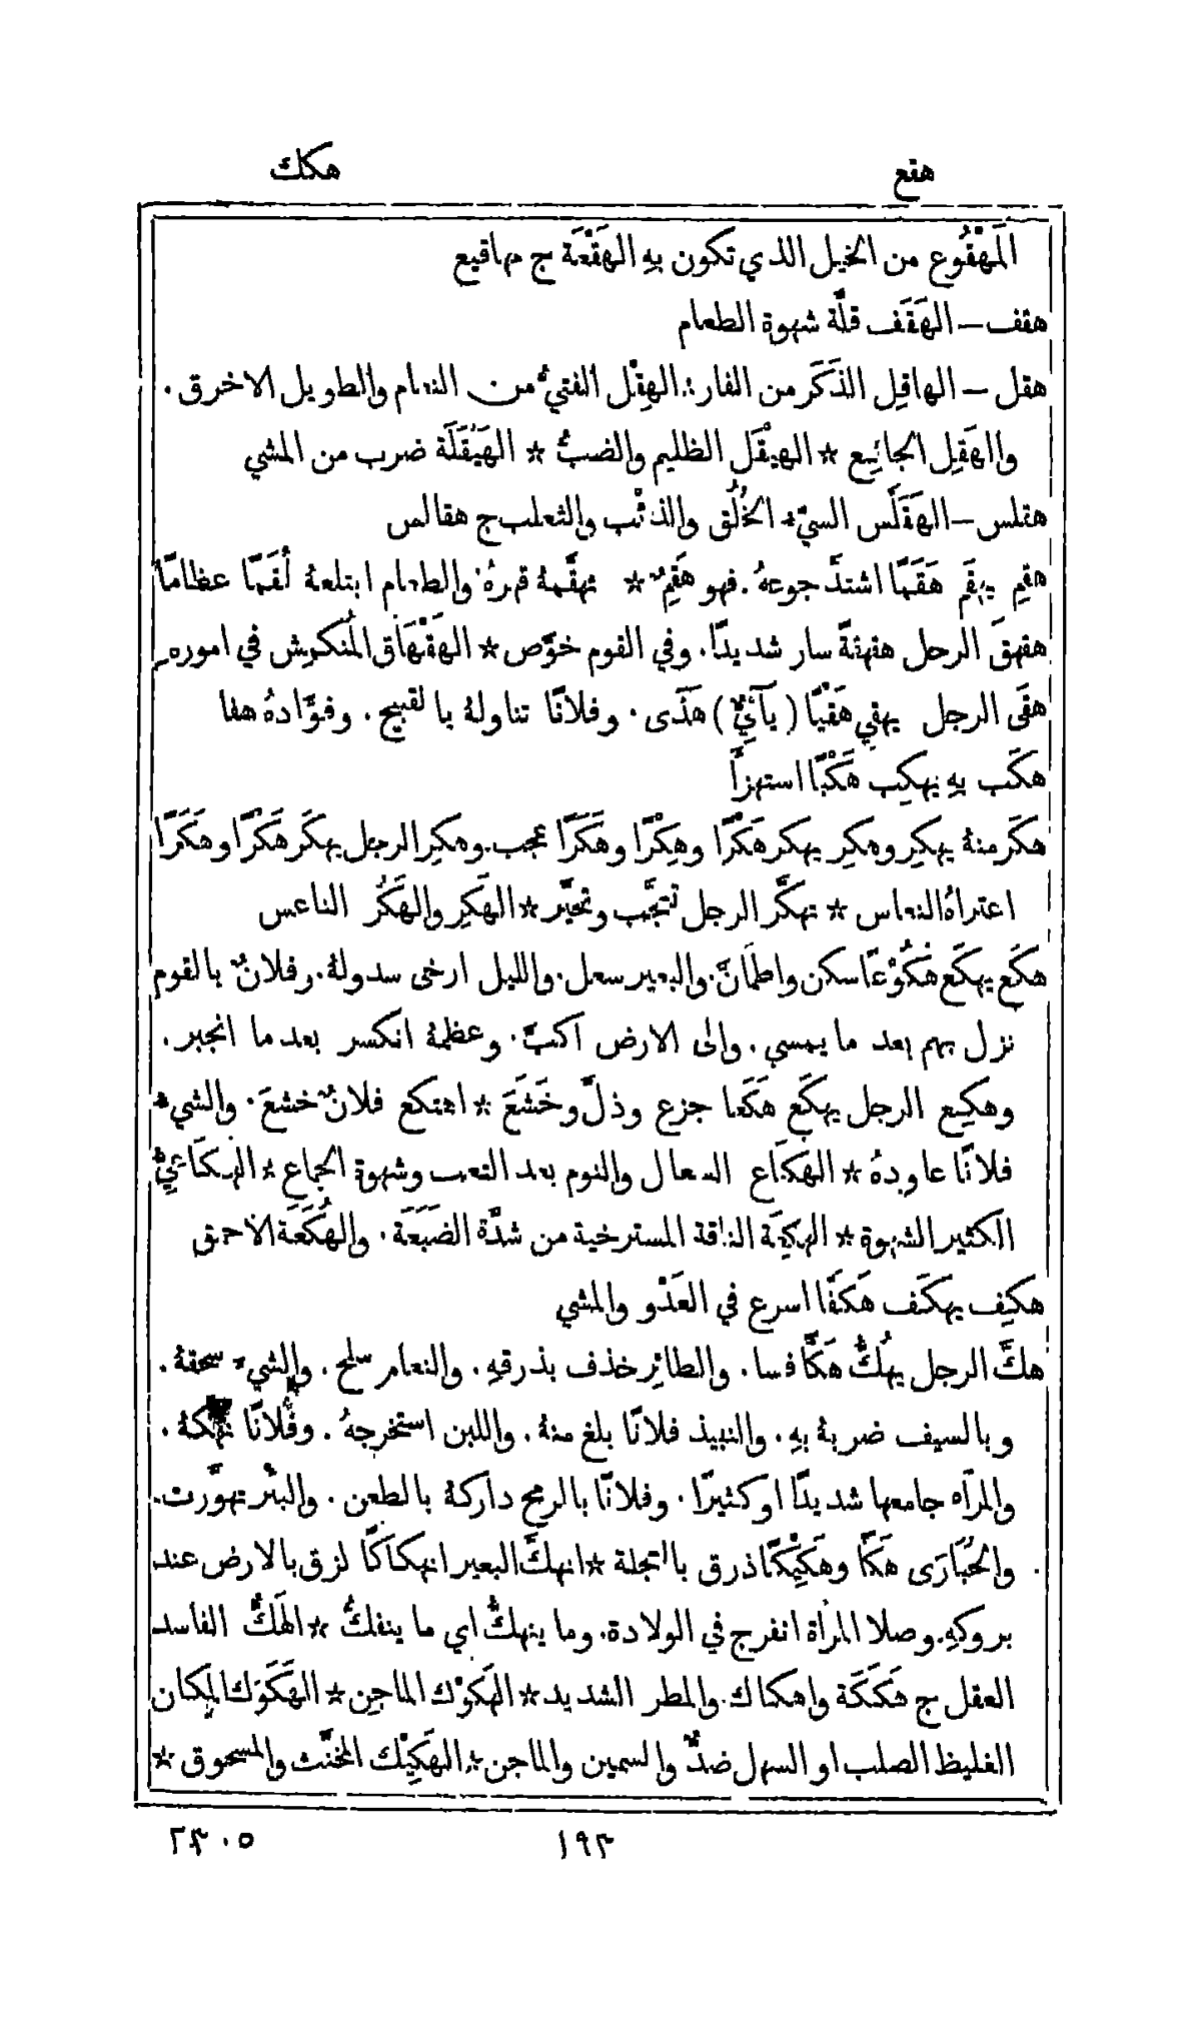 هقع
هكك
المَهْقُوع من الخيل الذي تكون بهِ الهَقْعَة ج مهاقيع
هقف – الهَقَف قلَّة شهوة الطعام
هقل – الهاقِل الذَكَر من الفار : الهِقْل الفتيُّ من النعام والطويل الاخرق .
والهَقِل الجائِع * الهيْقَل الظليم والضبُّ * الهَيْقَلَة ضرب من المشي
هقلس – الهَقَلَّس السيّء الخُلُق والذئْب والثعلب ج هقالس
هقِم يهقَم هَقَمًا اشتدَّ جوعهُ . فهو هَقِمٌ * تهقَّمهُ قهرهُ والطعام ابتلعهُ لُقَمًا عظامًا
هقهقَ الرجل هقهقةً سار شديدًا . وفي القوم خوَّص * الهَقْهَاق المُنكمِش في اموره
هقَى الرجل يهقِي هَقْيًا ( يآئِيٌّ ) هَذَى . وفلانًا تناولهُ بالقبيح . وفوَّادهُ هفا
هكَب بهِ يهكِب هَكْبًا استهزأَ
هكَر منهُ يهكِر وهكِر يهكر هَكْرًا وهِكْرًا وهَكَرًا عجب . وهكِر الرجل يهكَر هَكْرًا وهَكَرًا
اعتراهُ النعاس * تهكَّر الرجل تعجَّب وتحيَّر * الهَكِر والهَكُر الناعس
هكَع يهكَع هُكُوْعًا سكن واطمأنَّ . والبعير سعل . والليل ارخى سدولهُ . وفلانٌ بالقوم
نزل بهم بعد ما يمسي . والى الارض اكبَّ . وعظمهُ انكسر بعد ما انجبر .
وهكِع الرجل يهكَع هَكَعا جزع وذلَّ وخَشَعَ * اهتكع فلانٌ خشعَ . والشيء
فلانًا عاودهُ * الهُكَاع السعال والنوم بعد التعب وشهوة الجماع * الهُكَاعِيُّ
الكثير الشهوة * الهَكِعَة الناقة المسترخية من شدَّة الضَبَعَة . والهُكَعَة الاحمق
هكِف يهكَف هَكَفًا اسرع في العَدْو والمشي
هكَّ الرجل يهُكُّ هَكًّا فسا . والطائِر خذف بذرقهِ . والنعام سلح . والشيءَ سحقهُ .
وبالسيف ضربهُ بهِ . والنبيذ فلانًا بلغ منهُ . واللبن استخرجهُ . وفُلانًا نهكهُ .
والمرأه جامعها شديدًا او كثيرًا . وفلانًا بالرمح داركهُ بالطعن . والبئْر تهوَّرت .
والحُبَارَى هَكًّا وهَكِيْكًا ذرق بالعجلة * انهكَّ البعير انهكاكًا لزق بالارض عند
بروكهِ . وصلا المرأة انفرج في الولادة . وما ينهكُّ اي ما ينفكُّ * الهَكُّ الفاسد
العقل ج هَكَكَة واهكاك . والمطر الشديد * الهَكُوْك الماجِن * الهَكَوَّك المكان
الغليظ الصلب او السهل ضدٌّ والسمين والماجن * الهَكِيْك المخنَّث والمسحوق *
١٩٣
٢٣٠٥